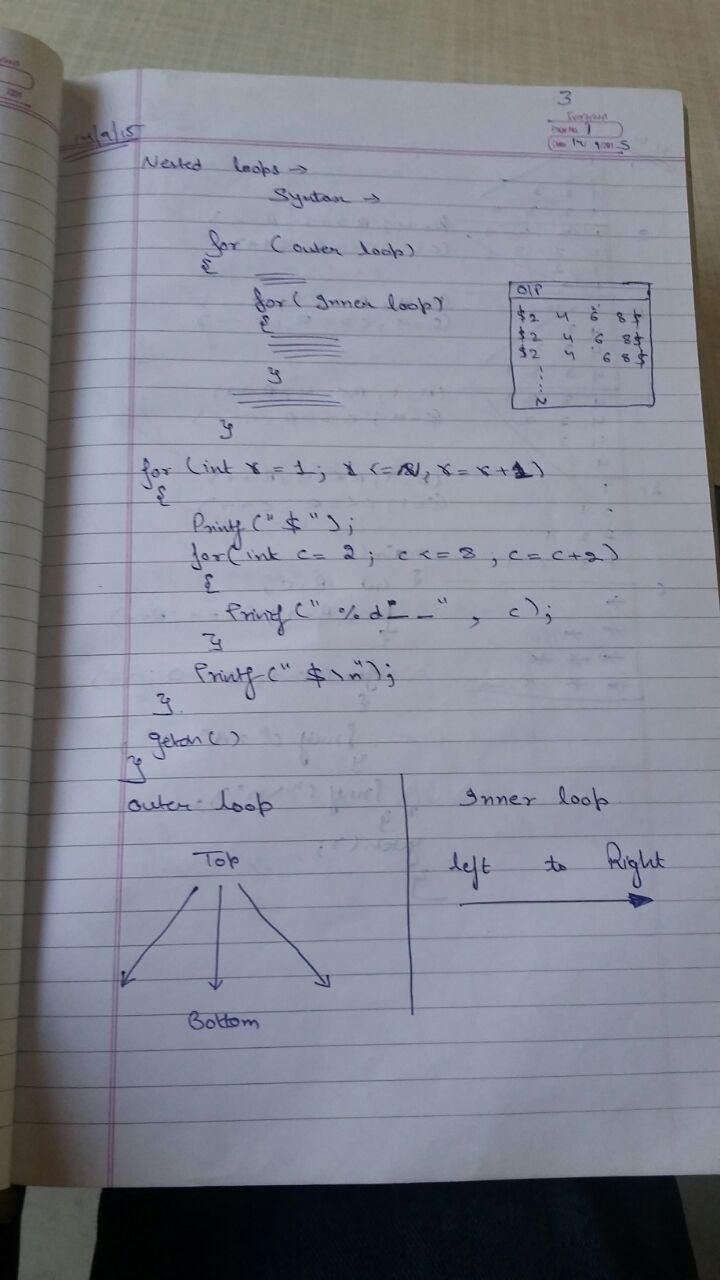 3
14/9/15
Page No. 1
Date 14 9 2015
Nested loops →
Syntax →
for (outer loop)
{
for( Inner loop)
{
}
}
O/P
$2 4 6 8$
$2 4 6 8$
$2 4 6 8$
N
for (int r = 1; r <= N, r = r+1)
{
Printf (" $ ");
for( int c = 2 ; c <= 8 , c = c+2)
{
Printf (" %d _ _ " , c);
}
Printf (" $ \n");
}
getch( )
}
outer loop
Inner loop
Top
left to Right
Bottom